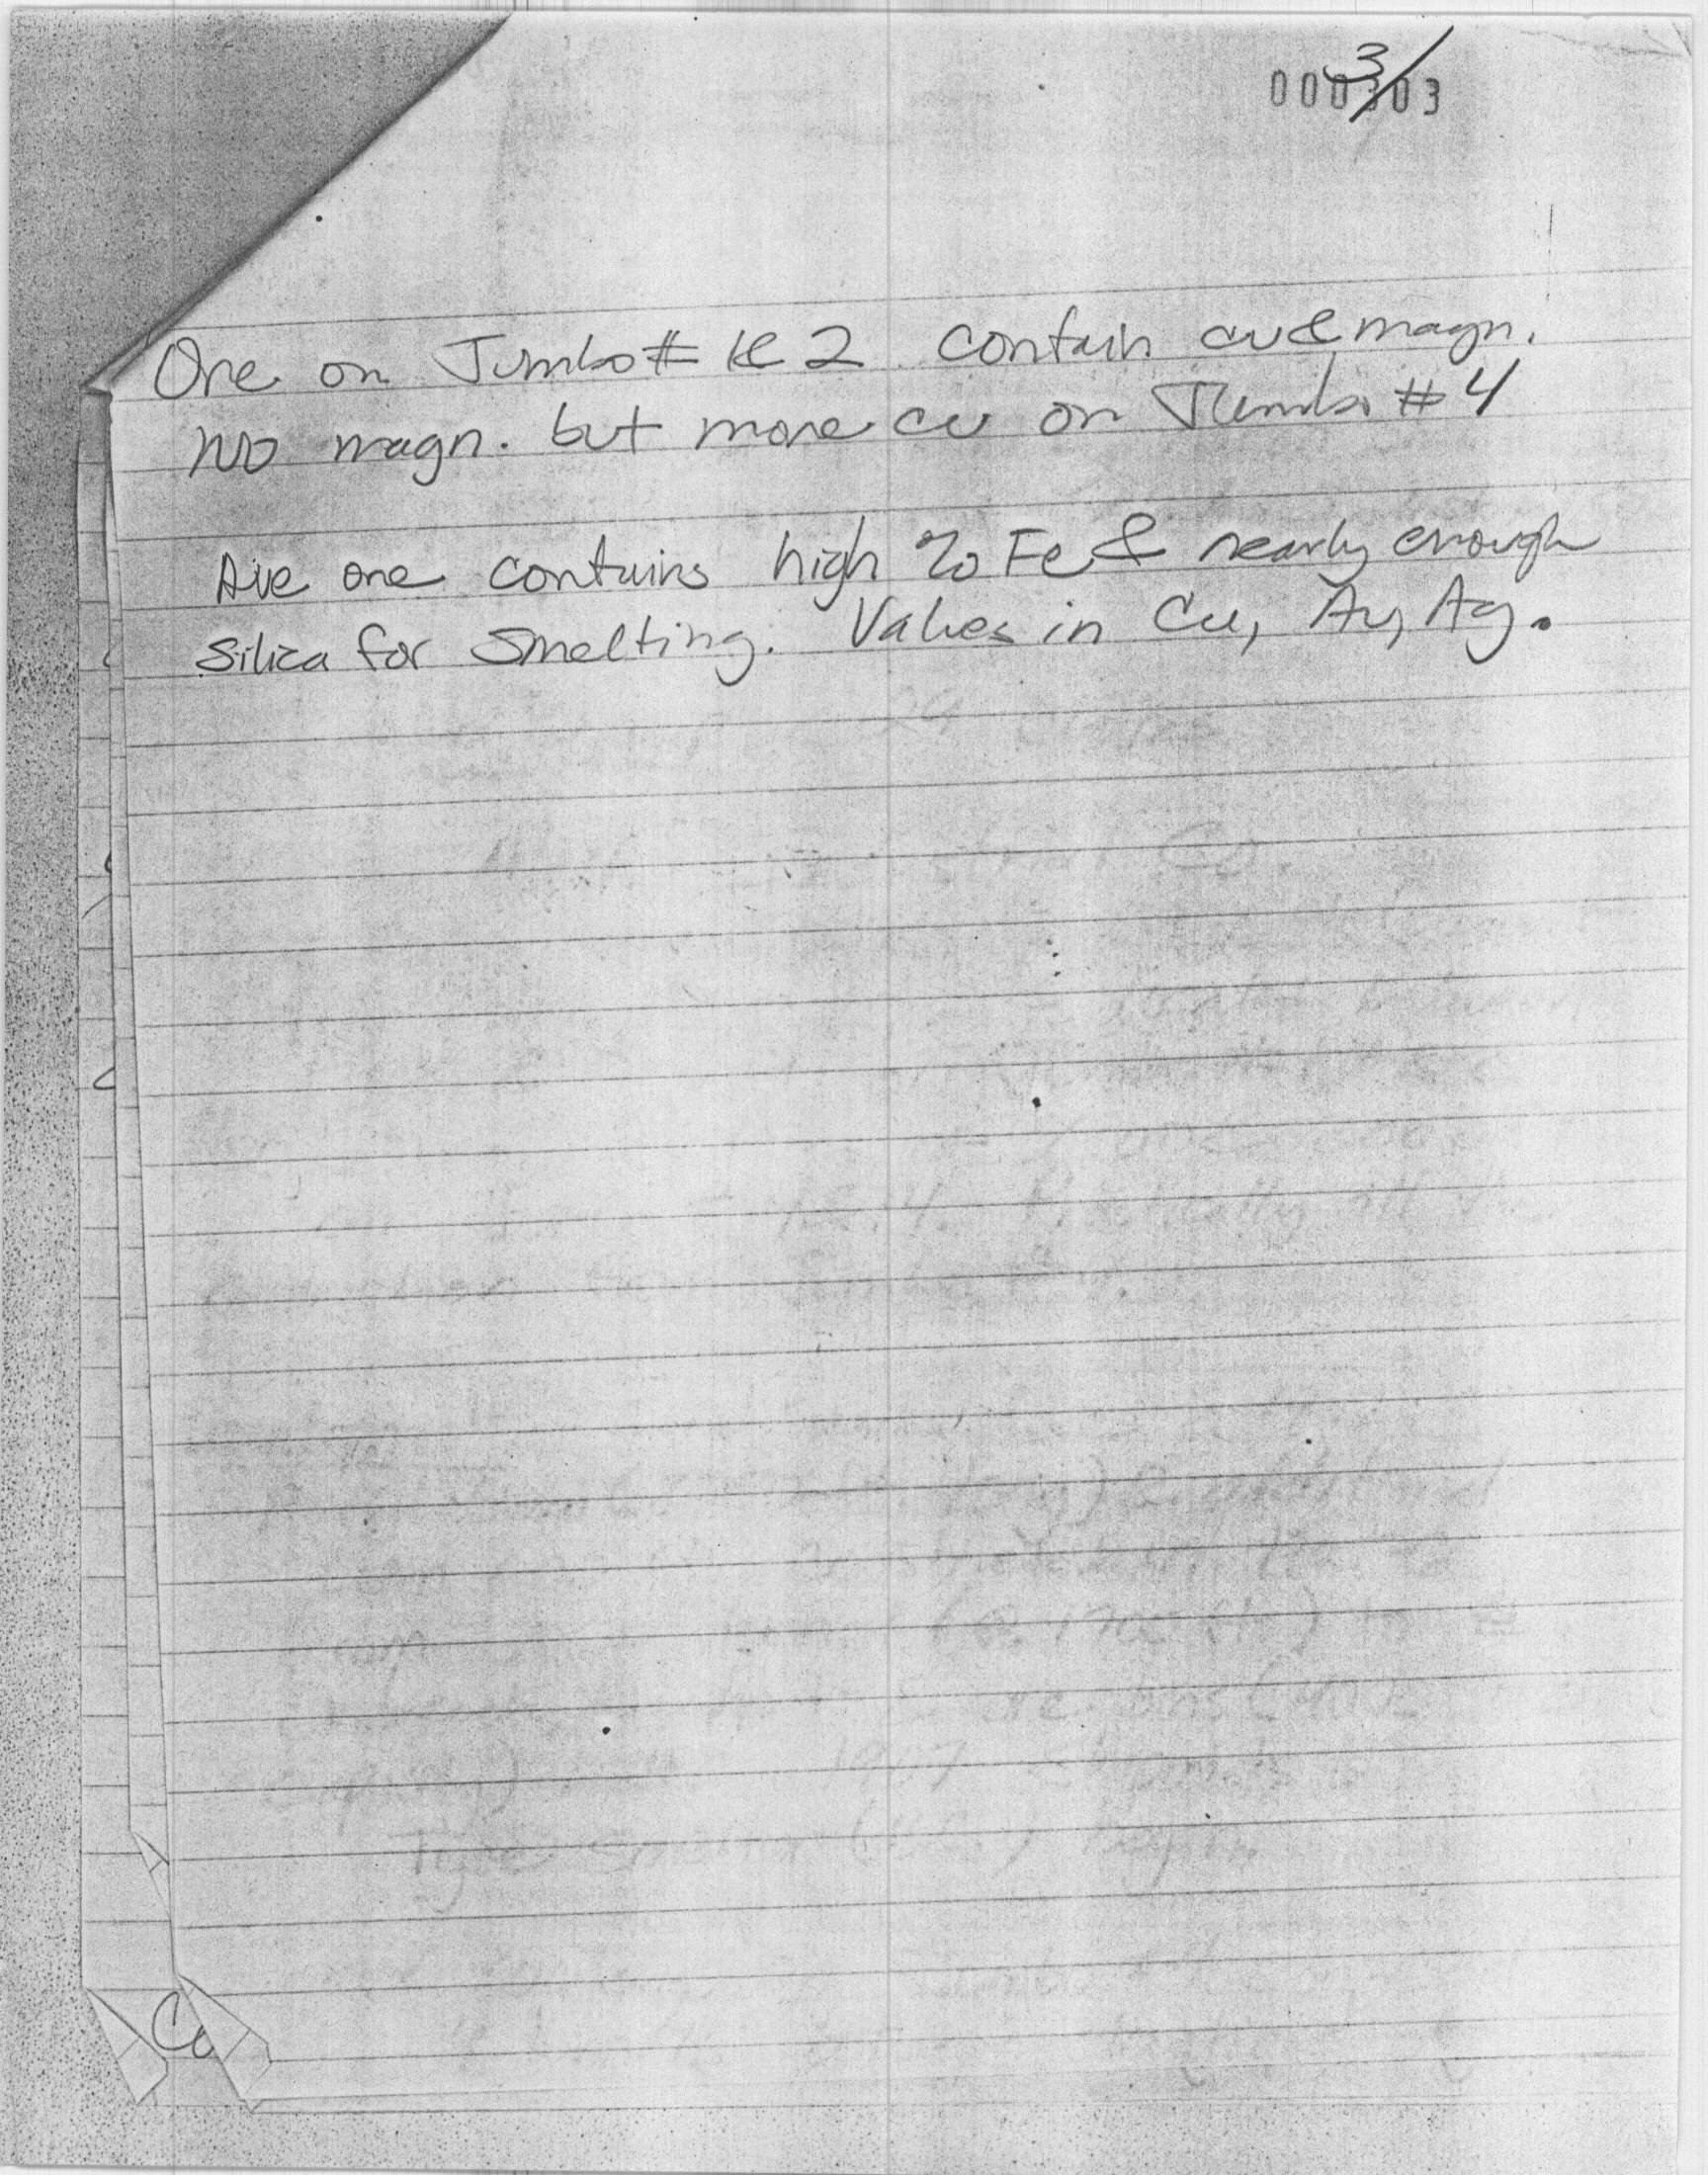 000303
3
Ore on Jumbo # 1 & 2 contain cu & magn.
No magn. but more cu on Jumbo # 4
Ave ore contains high % Fe & nearly enough
silica for smelting. Values in Cu, Au, Ag.
Co